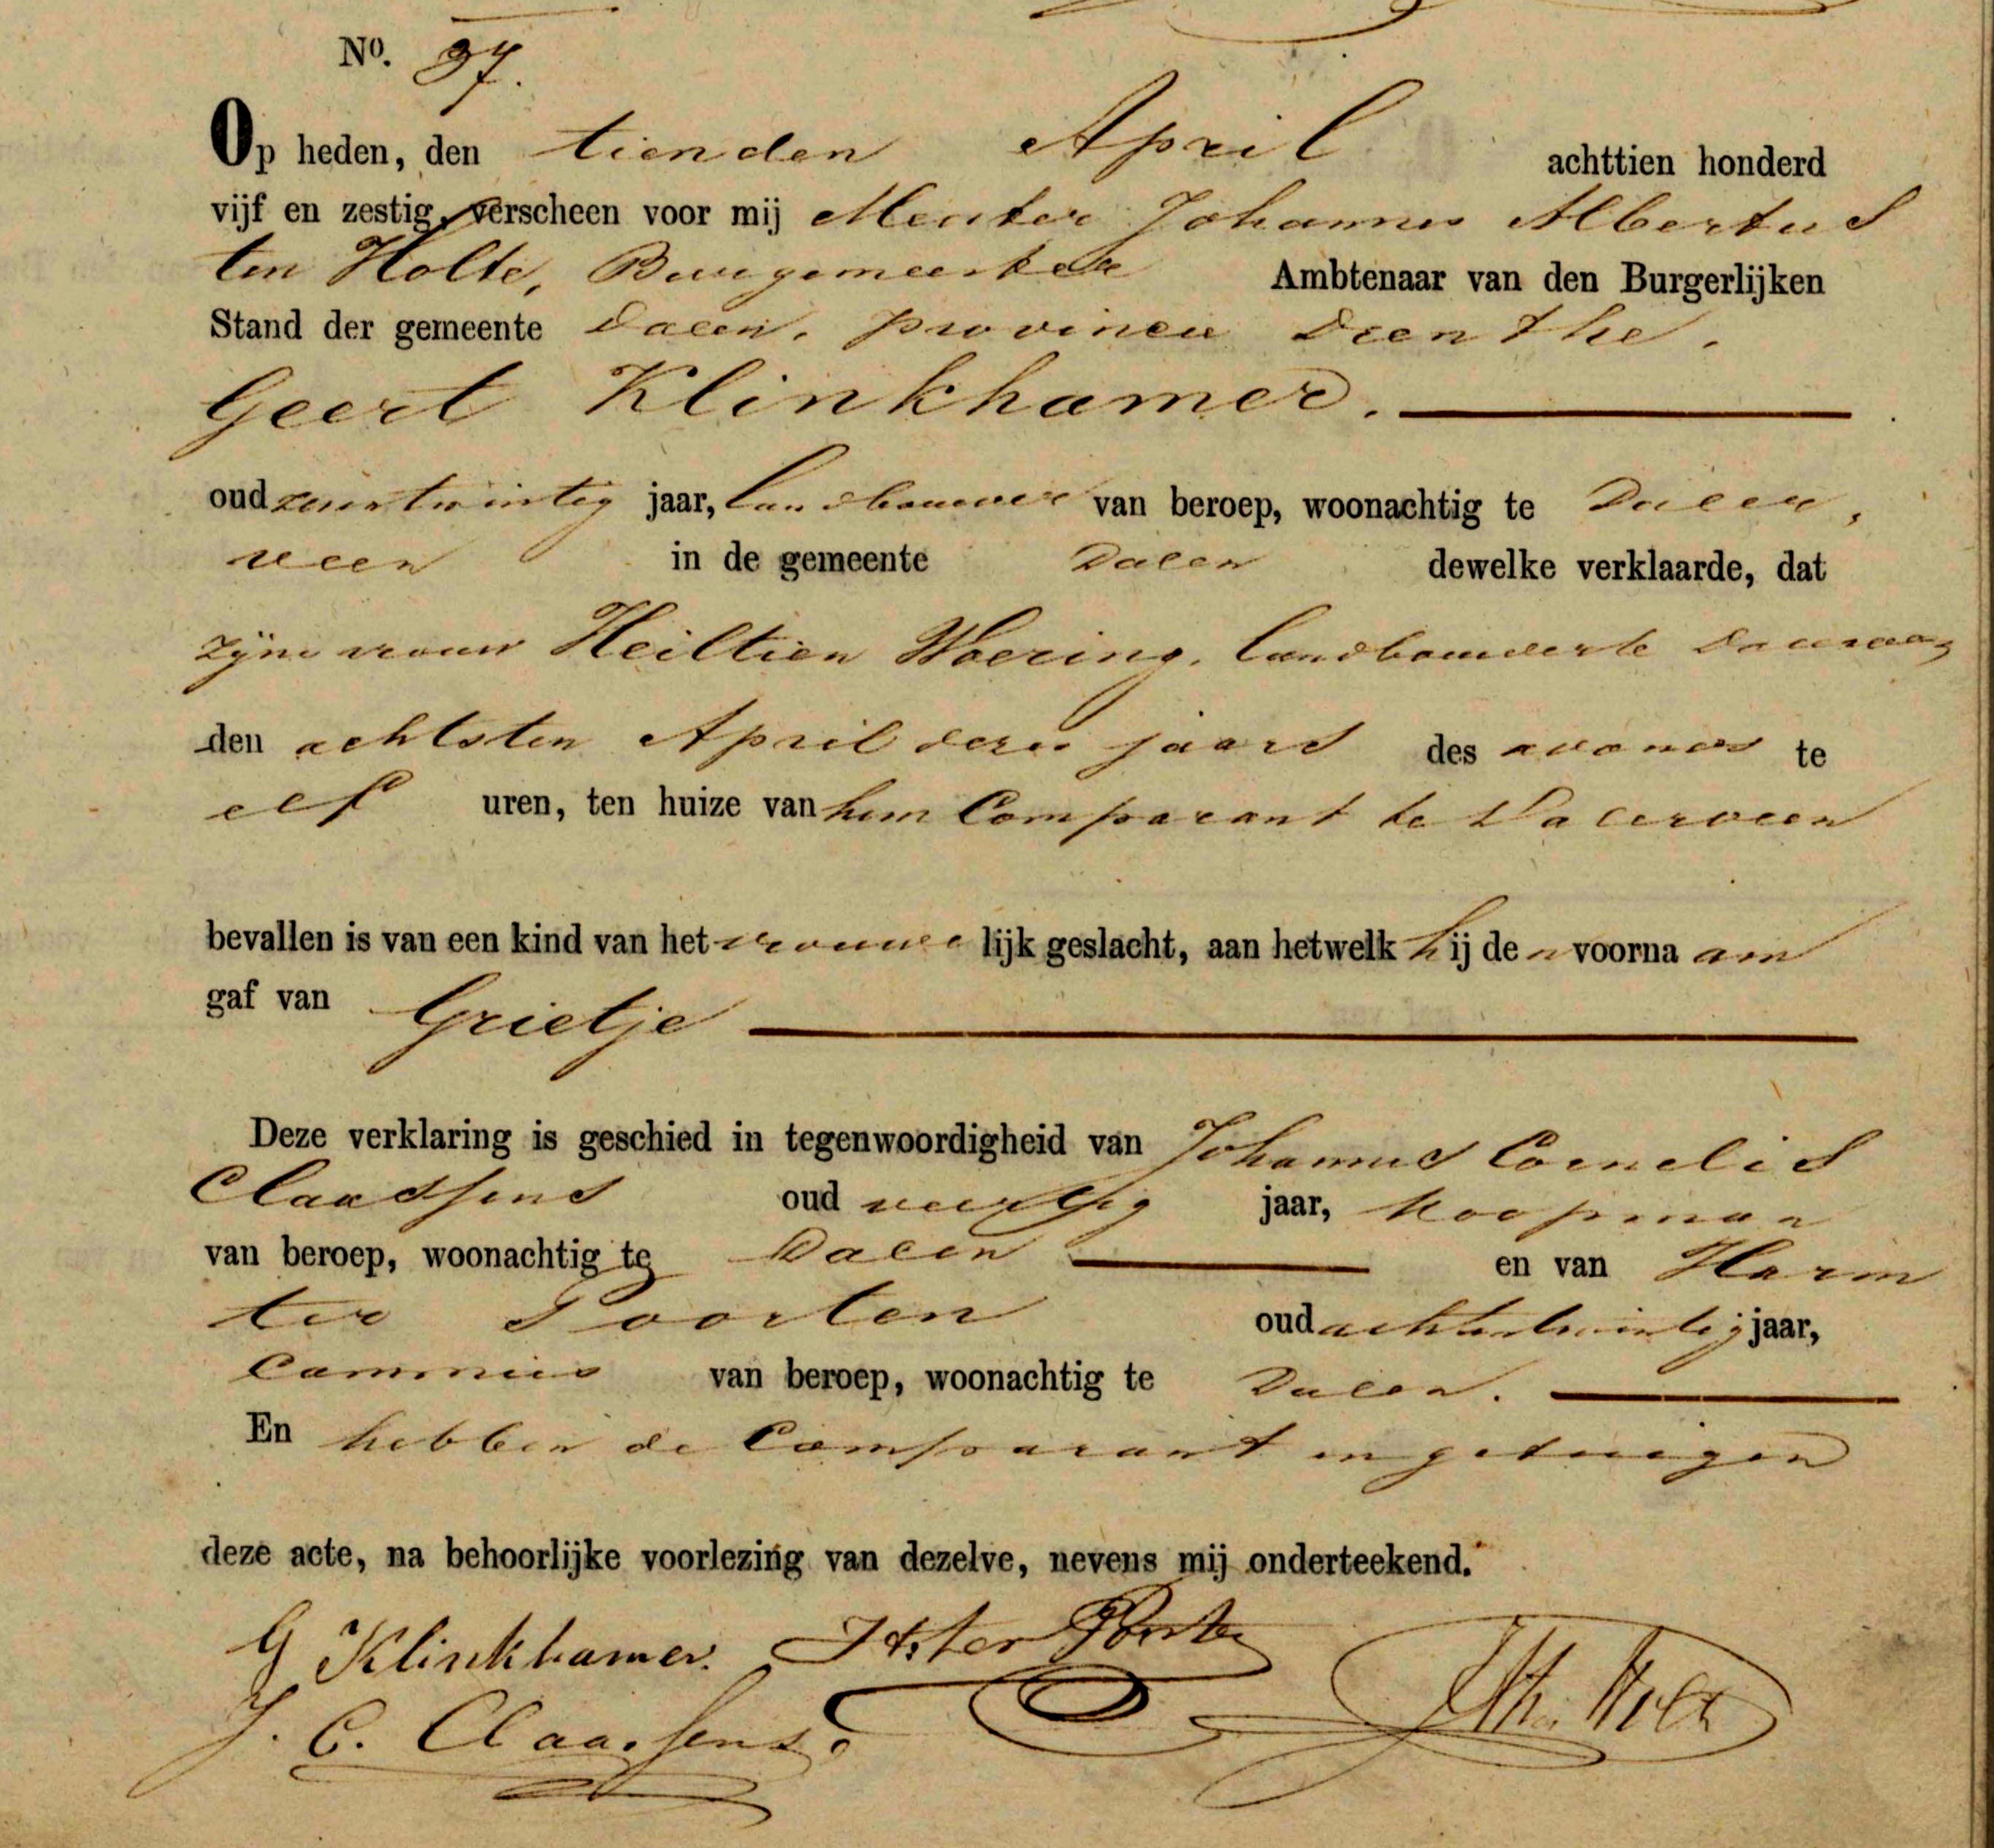 No. 37.
Op heden, den tienden April achttien honderd
vijf en zestig, verscheen voor mij Johannes Albertus
ten Holte, Burgemeester Ambtenaar van den Burgerlijken
Stand der gemeente Dalen, provincie Drenthe.
Geert Klinkhamer.
oud jaar, landbouwer van beroep, woonachtig te Dalen,
veen in de gemeente Dalen dewelke verklaarde, dat
zijne vrouw Heiltien Woering, landbouwerste
den achtsten April dezes jaars des avonds te
elf uren, ten huize van hem Comparant te Dalerveen
bevallen is van een kind van het vrouwelijk geslacht, aan hetwelk hij den voornaam
gaf van Grietje
Deze verklaring is geschied in tegenwoordigheid van Johannes Cornelis
Claassens oud veertig jaar, Koopman
van beroep, woonachtig te Dalen en van Harm
ter Poorten oud achtentwintig jaar,
Commies van beroep, woonachtig te Dalen.
En hebben de Comparant en getuigen
deze acte, na behoorlijke voorlezing van dezelve, nevens mij onderteekend.
G Klinkhamer. H ter Poorten
J. C. Claassens.